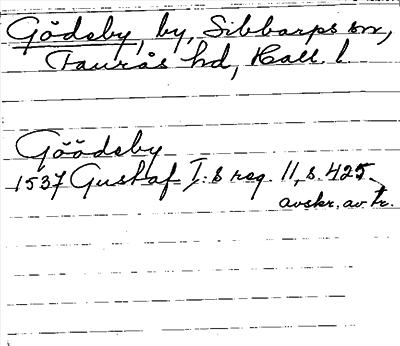 Gödsby, by, Sibbarps sn,
Faurås hd, Hall. l.
Göödsby
1537 Gustaf I:s reg. 11, s. 425.
avskr. av tr.